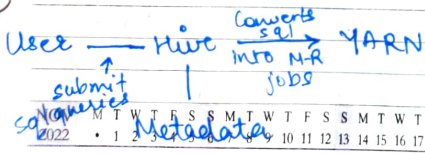 User — Hive → YARN
Converts
sql
into M-R
jobs
↑
submit
sql queries
Metadata
NOV M T W T F S S M T W T F S S M T W T
2022 • 1 2 3 4 5 6 7 8 9 10 11 12 13 14 15 16 17